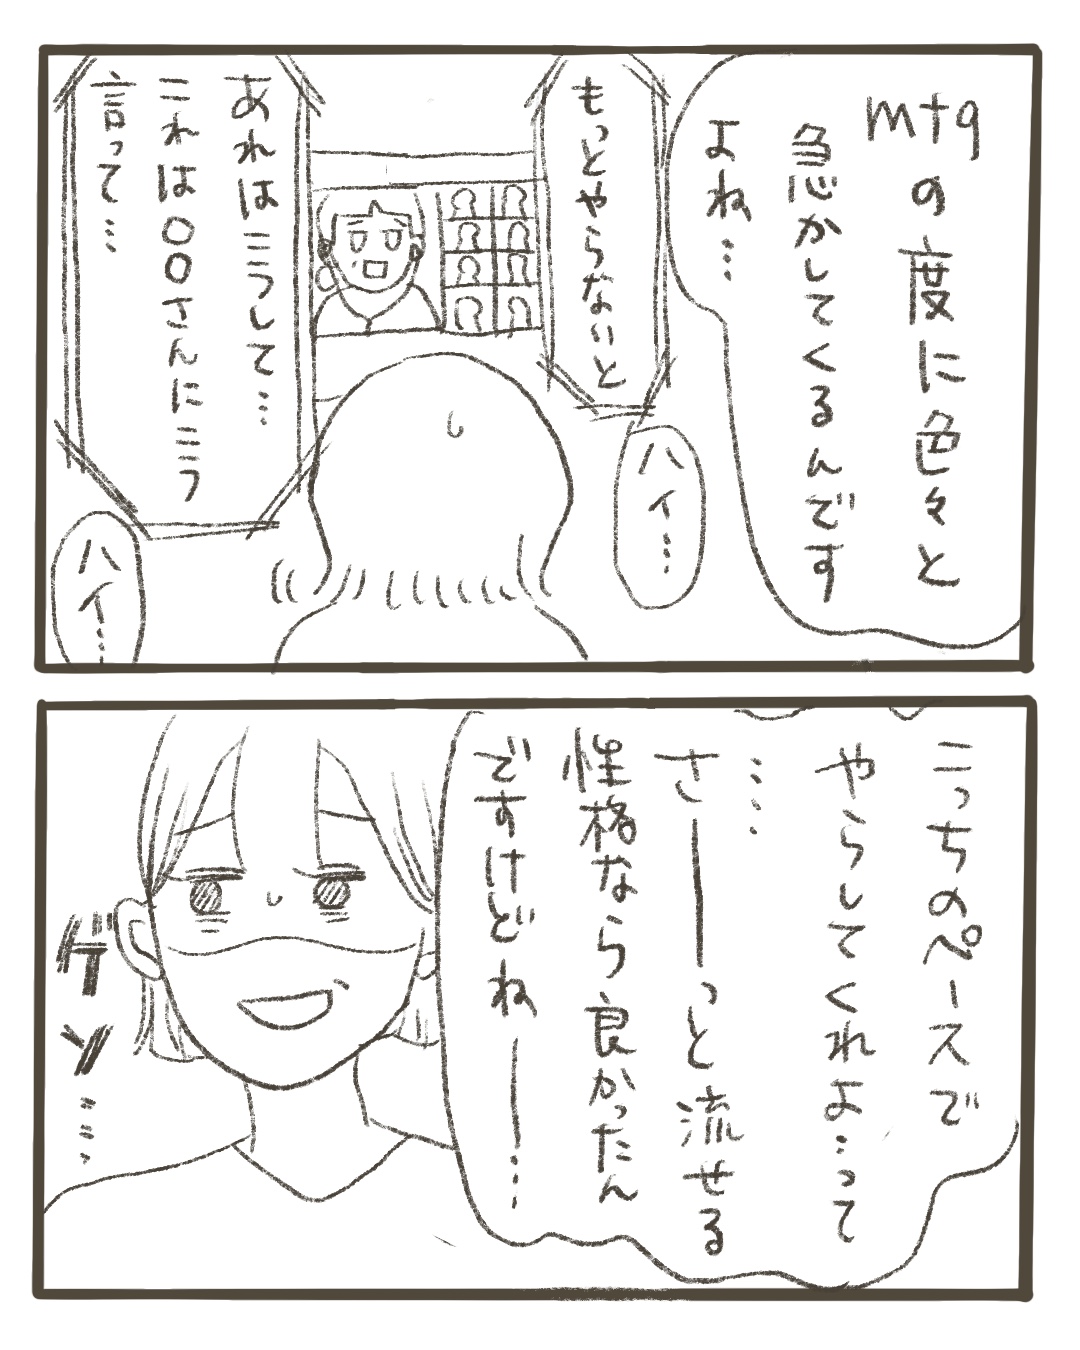 mtgの度に色々と
急かしてくるんです
よね…
もっとやらないと
ハイ…
あれはこうして…
これは〇〇さんにこう
言って…
ハイ…
こっちのペースで
やらしてくれよ…って
…
さーーっと流せる
性格なら良かったん
ですけどねー…
ゲソ…